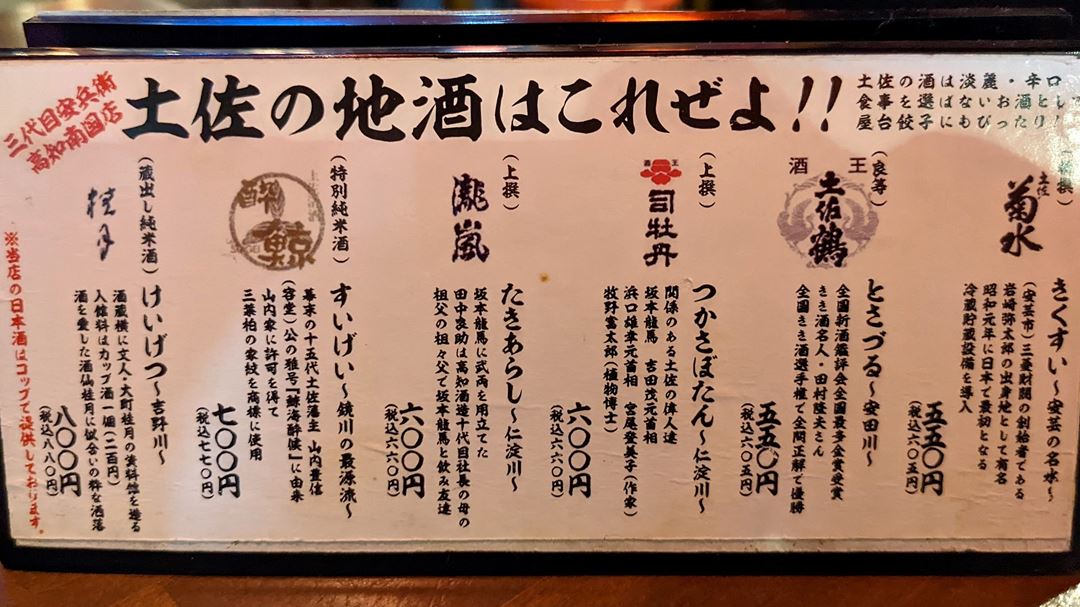 土佐の地酒はこれぜよ!!
土佐の酒は淡麗・辛口
食事を選ばないお酒とし
屋台餃子にもぴったり!
三代目安兵衛
高知南国店
撰)
土佐
菊水
きくすい～安芸の名水～
(安芸市)三菱財閥の創始者である
岩崎弥太郎の出身地として有名
昭和元年に日本で最初となる
冷蔵貯蔵設備を導入
五五〇円
(税込六〇五円)
(良等)
酒王
土佐鶴
とさづる～安田川～
全国新酒鑑評会全国最多金賞受賞
きき酒名人・田村隆夫さん
全国きき酒選手権で全問正解で優勝
五五〇円
(税込六〇五円)
(上撰)
酒王
司牡丹
つかさぼたん～仁淀川～
関係のある土佐の偉人達
坂本龍馬 吉田茂元首相
浜口雄幸元首相 宮尾登美子(作家)
牧野富太郎(植物博士)
六〇〇円
(税込六六〇円)
(上撰)
瀧嵐
たきあらし～仁淀川～
坂本龍馬に武両を用立てた
田中良助は高知酒造十代目社長の母の
祖父の祖々父で坂本龍馬と飲み友達
六〇〇円
(税込六六〇円)
(特別純米酒)
酔鯨
すいげい～鏡川の最源流～
幕末の十五代土佐藩主 山内豊信
(容堂)公の雅号「鯨海酔侯」に由来
山内家に許可を得て
三葉柏の家紋を商標に使用
七〇〇円
(税込七七〇円)
(蔵出し純米酒)
桂月
けいげつ～吉野川～
酒蔵横に文人・大町桂月の資料館を造る
入館料はカップ酒一個(二百円)
酒を愛した酒仙桂月に似合いの粋な洒落
八〇〇円
(税込八八〇円)
※当店の日本酒はコップで提供しております。